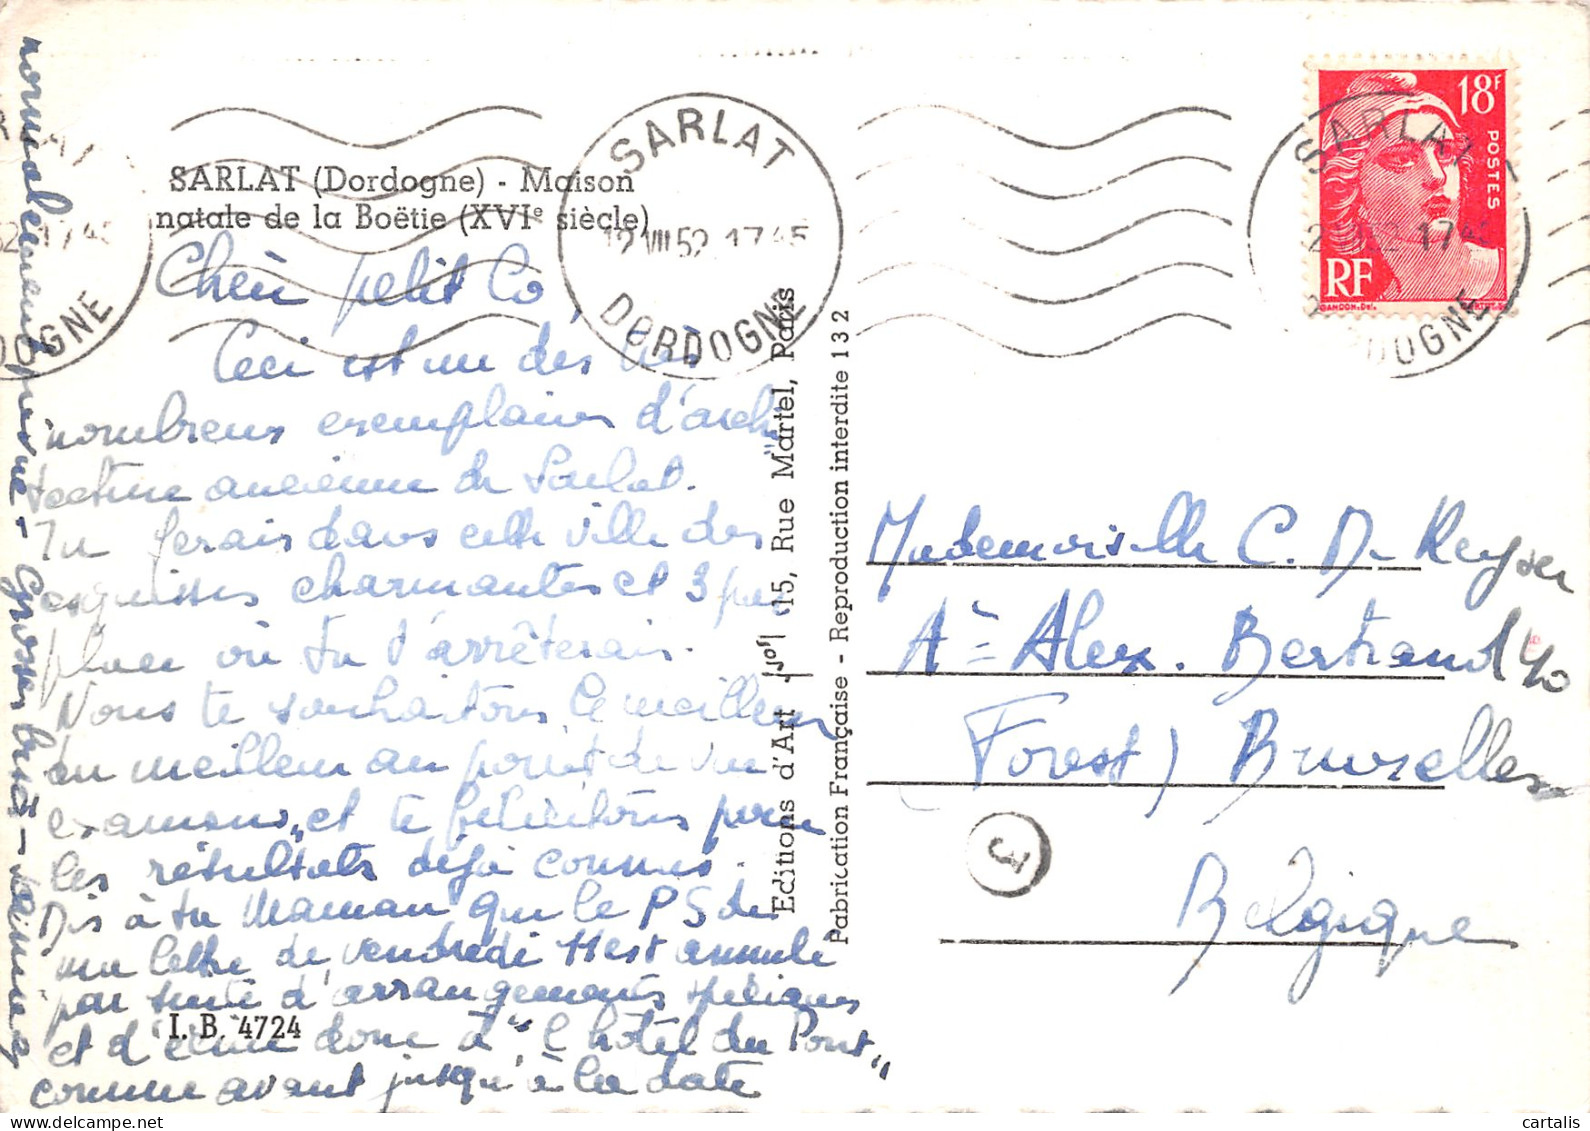 SARLAT (Dordogne) - Maison
natale de la Boëtie (XVIe siècle)
Chéri petit Co,
Ceci est un des très
nombreux exemplaires d'archi
tecture ancienne de Sarlat.
Tu ferais dans cette ville des
esquisses charmantes et 3 pas
plus où tu t'arrêterais.
Nous te souhaitons le meilleur
du meilleur au point de vue
examens, et te félicitons pour
les résultats déjà connus.
Dis à ta Maman que le PS de
ma lettre de vendredi 11 est annulé
par suite d'arrangements
et d'écrire donc à "l'hôtel du Pont"
comme avant jusqu'à la date
normalement prévue - Grosses bises -
I. B. 4724
Editions d'Art 15, Rue Martel, Paris
Fabrication Française - Reproduction interdite 132
SARLAT
12 VIII 52 17 45
DORDOGNE
SARLAT
17 45
DORDOGNE
18F
POSTES
RF
GANDON. Del.
Mademoiselle C. De Keyser
Ae Alex. Bertrand 40
Forest) Bruxelles
Belgique
cartalis.com